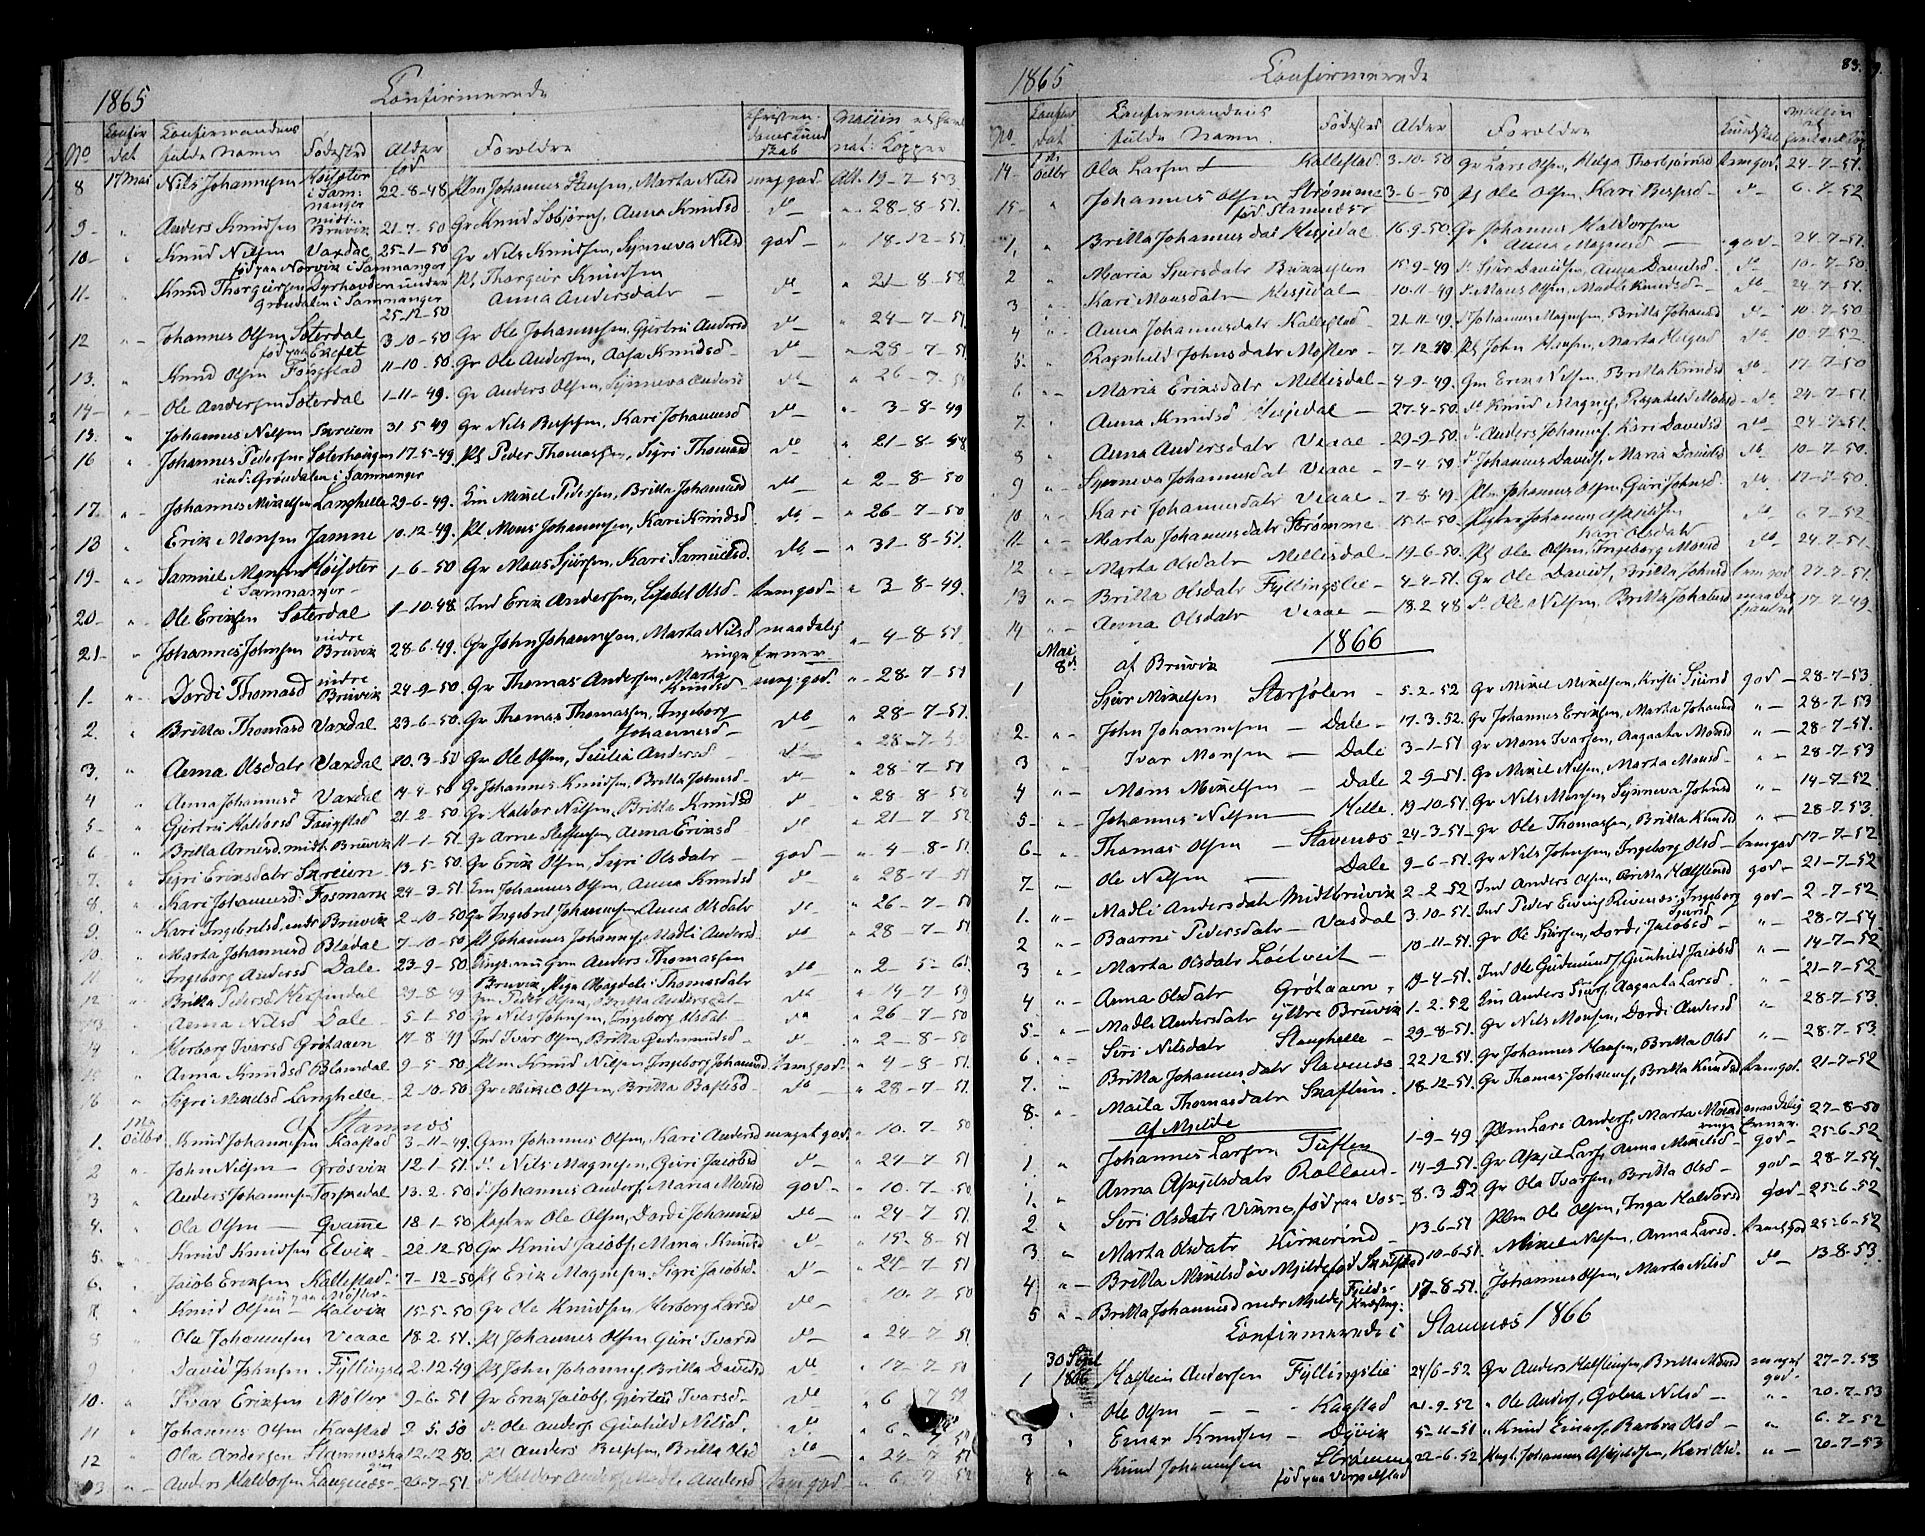 1865 Confirmerede
No Confir dat Confirmandens fulde Navn Fødested Alder født Foroldre Christendomskundskab nat: Kopper
8 17 Mai Nils Johannesen Høisæter i Samnanger 22-8-48 Johannes Hansen, Marta Nilsd meg god Att. 19-7-53
9 " Anders Knudsen midt Bruvik 21-7-50 Gr Knud Sobjørns, Anna Knudsd do " 28-8-51.
10 " Knud Nilsen Vaxdal 25-1-50 Gr Nils Knudsen, Synneva Nilsd god " 18-12-51
født paa Norvik i Samnanger
11 " Knud Thorgeirsen Dyrhovden under Pl Thorgeir Knudsen do " 21-8-58
Grøndalen i Samnanger Anna Andersdatr
25-12-50
12 " Johannes Olsen Soterdal 3-10-50 Gr Ole Johannesen, Gjertru Andersd do " 24-7-51
født paa Exefet
13 " Knud Olsen Fougstad 11-10-50 Gr Ole Andersen, Aasa Knudsd do " 28-7-51
14 " Ole Andersen Soterdal 1-11-49. Gr Anders Olsen, Synneva Andersd do " 26-7-51
15 " Johannes Nilsen Skreien 31-5-49 Gr Nils Bersen, Kari Johannesd do " 3-8-49
16 " Johannes Pedersen Soterhougen 17-5-49 Pl Peder Thomassen, Sigri Thomasd do " 21-8-58
und. Grøndalen i Samnanger
17 " Johannes Mikelsen Langhelle 29-6-49. Em Mikel Pedersen, Britta Johannesd do " 2-8-50
18 " Erik Monsen Jamne 10-12-49. Pl Mons Johannesen, Kari Knudsd do " 26-7-50
19 " Samuel Monsen Høisoter 1-6-50 Gr Mons Sjursen, Kari Samuelsd do " 31-8-51.
i Samnanger
20 " Ole Eriksen Soterdal 1-10-48 Ind Erik Andersen, Lisabet Olsd temgod " 3-8-49.
21 " Johannes Johnsen indre Bruvik 28-6-49. Gr John Johannesen, Marta Nilsd maadelig " 4-8-51
ringe Evner
1 " Dordi Thomasd indre Bruvik 24-9-50 Gr Thomas Andersen, Marta Knudsd meg: god. " 28-7-51
2 " Britta Thomasd Vaxdal 23-6-50. Gr Thomas Thomassen, Ingeborg Johannesd do " 28-7-51.
3 " Anna Olsdatr Vaxdal 20-3-50 Gr Ole Olsen, Sicilia Andersd do " 28-7-52
4 " Anna Johannesd Vaxdal 14-4-50 Gr Johannes Knudsen, Britta Johnsd do " 28-7-51
5 " Gjertru Haldorsd Faugstad 21-2-50 Gr Haldor Nilsen, Britta Knudsd do " 28-8-50
6 " Britta Arnesd. midt Bruvik 11-1-51 Gr Arne Steffensen, Anna Eriksd do " 21-7-52
7 " Sigri Eriksdatr Skreien 13-5-50 Gr Erik Olsen, Sigri Olsdatr god " 4-8-51
8 " Kari Johannesd: Fosmark 24-3-51 Em Johannes Olsen, Anna Knudsd do " 28-7-51
9 " Kari Ingebretsd, indr Bruvik 2-10-50 Gr Ingebret Johannesen, Anna Olsdatr do " 26-7-50
10 " Marta Johannesd Blødal 7-10-50 Pl Johannes Johannes, Madli Andersd do " 28-7-51
11 " Ingeborg Andersd Dale 23-9-50. Anders Thomassen Bruvik, Magdeli Thomasdatr do " 2-5-61
12 " Britta Pedersd Hespendal 29-8-49 Peder Olsen, Britta Andersdat do " 14-7-59
13 Anna Nilsd Dale 5-1-50 Gr Nils Johnsen, Ingeborg Olsdat do " 26-7-50
14 Herborg Ivarsd Grøtaaen 17-8-49 Ind Ivar Olsen, Britta Gudmundsd do " 2-8-50
Anna Knudsd Blomdal 9-5-50 Knud Nilsen Ingeborg Johannesd temgod " 4-8-51.
18 " Sigri Mikelsd Langhelle 2-10-50 Gr Mikel Olsen, Britta Bottolfsd do " 28-7-51.
1ste Octbr Af Stamnos
1. Knud Johannesen Kaastad 3-11-49. Grm Johannes Olsen, Kari Andersd meget god " 10-7-50
2 " John Nilsen Grøsvik 12-1-51. do Nils Magnesen, Guri Jacobsd do " 24-7-51
3 " Anders Johannesen Torskedal 13-2-50 do Johannes Anders, Maria Monsd god " 10-7-50
4. " Ola Olsen Qvamme 18-1-50 Ole Olsen, Dordi Johannesd do " 24-7-51.
5. " Knud Knudsen Elvik 22-12-50 Gr Knud Jacobs, Maria Knudsd do " 15-8-51
6. " Jacob Eriksen Kallestad 7-12-50 Pl Erik Magnesen, Sigri Jacobsd do " 24-7-51
nu paa Møster
7. " Knud Olsen Halvik 15-5-50 Gr Ole Knudsen Herborg Larsd do " 10-7-50
8 " Ola Johannesen Veaae 18-2-51. Pl Johannes Olsen, Guri Ivarsd do " 24-7-51
9 " David Johnsen Fyllingsl 2-12-49 Pl John Johannes, Britta Davidsd do " 17-7-50
10. " Ivar Eriksen Møster 9-6-51 Gr Erik Jacobs, Gjertru Ivarsd do " 6-7-52
11 " Johannes Olsen Kaastad 9-5-50 do Ole Anders Gunhild Nilsd do " 6
12 " Ola Andersen Stamnoshougen 12-12-50. Pl Anders Bersen, Britta Olsd do " 24-7-51
13 " Anders Haldorsen Langenæs 26-7-51. do Haldor Anders, Madli Andersd temgod " 6-7-52

1865 Confirmerede 83.
No Confir dat Confirmandens fulde Navn Fødested Alder Foroldre Kundskab
14 1ste Octbr Ola Larsen Kallestad 3-10-50 Gr Lars Olsen, Helga Thorbjørnsd temgod 24-7-51.
15 " Johannes Olsen Strømme 3-6-50 Pl Ole Olsen, Kari Bersd do 6-7-52
født Stamneser
1, " Britta Johannesdat Hesjedal 16-9-50. Gr Johannes Haldorsen Anna Magnesd god 24-7-51.
2 " Maria Sjursdatr Brekkestien 15-9-49 do Sjur Davidsen, Anna Davidsd do 10-7-50
3 " Kari Monsdatr Hesjedal 10-11-49 do Mons Olsen, Madli Knudsd do 24-7-51.
4 " Anna Johannesdatr Kallestad 21-11-49. do Johannes Magnesen, Britta Johannesd do 10-7-50
5. " Ragnhild Johnsdatr Møster 7-12-49 Pl John Hansen, Marta Helgesd do 10-7-52.
6 " Maria Eriksdatr Millisdal 4-9-49. Gm Erik Nilsen, Britta Knudsd do 17-7-50
7. " Anna Knudsd Hesjedal 27-4-50. do Knud Magnes, Ragnhild Monsd do 24-7-51.
8 " Anna Andersdatr Veaae 29-9-50. do Anders Johannes, Kari Davidsd do 24-7-51.
9 " Synneva Johannesdat Veaae 7-4-50 do Johannes Davids, Maria Davidsd do 10-7-50.
10 " Kari Johannesdatr Veaae 7-8-49. Johannes Olsen, Guri Johnsd do 17-7-50.
11 " Marta Johannesdatr Strømme 15-1-50. Johannes Askjelsen Kari Olsdatr do 6-7-52
12 " Marta Olsdatr Millisdal 19-6-50. Pl Ole Olsen, Ingeborg Monsd do 24-7-51.
13 " Britta Olsdatr Fyllingslie 4-4-51. Gr Ole Davids, Britta Johnsd temgod 24-7-51.
14 " Anna Olsdatr Veaae 18-2-48 do Ole Nilsen, Britta Johannesd 17-7-49
1866
Mai 8de af Bruvik
1 Sjur Mikelsen Storsølen 5-2-52 Gr Mikel Mikelsen, Kristi Sjursd god 28-7-53
2 " John Johannesen Dale 17-3-52. Gr Johannes Eriksen, Marta Johannesd " 28-7-53
3 " Ivar Monsen Dale 3-1-51 Gr Mons Ivarsen, Aagaata Monsd " 28-7-51.
4 " Mons Mikelsen Dale 2-9-51. Gr Mikel Nilsen, Marta Monsd " 28-7-53
5 " Johannes Nilsen Helle 19-10-51. Gr Nils Monsen, Synneva Johnsd " 14-7-52.
6 " Thomas Olsen Stavenos 24-3-51 Gr Ole Thomassen, Britta Knudsd " 28-7-53.
7 " Ole Nilsen Dale 9-6-51. Gr Nils Johnsen, Ingeborg Olsd temgod 17-7-52
1. " Madli Andersdatr Midtbruvik 2-2-52 Ind Anders Olsen, Britta Halstensd god 21-7-52
2 " Baarni Pedersdatr Vaxdal 3-10-51. Ind Peder Eivins Rivenæs: Ingeborg Sjursd god 2-7-52
3 " Marta Olsdatr Løitveit 10-11-51. Gr Ole Sjursen, Dordi Jacobsd " 28-7-54.
4 " Anna Olsdatr Grøtaaen 19-4-51. Ind Ole Gudmunds, Gunhild Jacobsd " 14-7-52.
5 " Madli Andersdatr yttre Bruvik 1-2-52 Em Anders Sjurs, Aagaata Larsd " 21-7-52
6 " Siri Nilsdatr Stanghelle 29-8-51. Gr Nils Monsen, Dordi Andersd " 28-7-53.
7 " Britta Johannesdatr Stavenos 22-12-51. Gr Johannes Hansen, Britta Olsd " 28-7-53.
8 " Maita Thomasdatr Skaftun 18-12-51. Gr Thomas Johannes, Britta Knudsd temgod. 21-7-52
Af Mjelde
1 " Johannes Larsen Tuften 1-9-49 Lars Anders, Marta Monsd maadelig ringe Evner 27-8-50
1 " Anna Askjelsdatr Rolland 14-9-51. Gr Askjel Lars, Anna Mikelsd god 25-6-52
2 " Siri Olsdatr Vinne, født paa Vos 8-3-52 Gr Ola Ivarsen, Britta Olsd god 28-7-54.
3 " Marta Olsdatr Kirkerind 13-6-51 Plm Ole Olsen, Inga Haldorsd god 25-6-52
4 " Britta Mikelsd øv Mjelde født 10-6-51. Mikel Nilsen, Anna Larsd temgod 25-6-52
5 " Britta Johannesd nedr Mjelde, 17-8-51. Johannes Olsen, Marta Nilsd do 13-8-53.
Confirmerede i Stamnos 1866
30 Sept 1866
1 Halstein Andersen Fyllingslie 24/6-52 Gr Anders Halstensen, Britta Monsd meget god 27-7-53
" Ole Olsen Kaastad 21-9-52 " Ole Anders, Golma Nilsd " 20-7-53
3 " Einar Knudsen Dyvik 5-11-51 " Knud Einars, Barbra Olsd " 6-7-52
4 " Knud Johannesen Strømme 22-6-52 Johannes Askjelsen, Kari Olsd " 20-7-53
født paa Vorpelstad